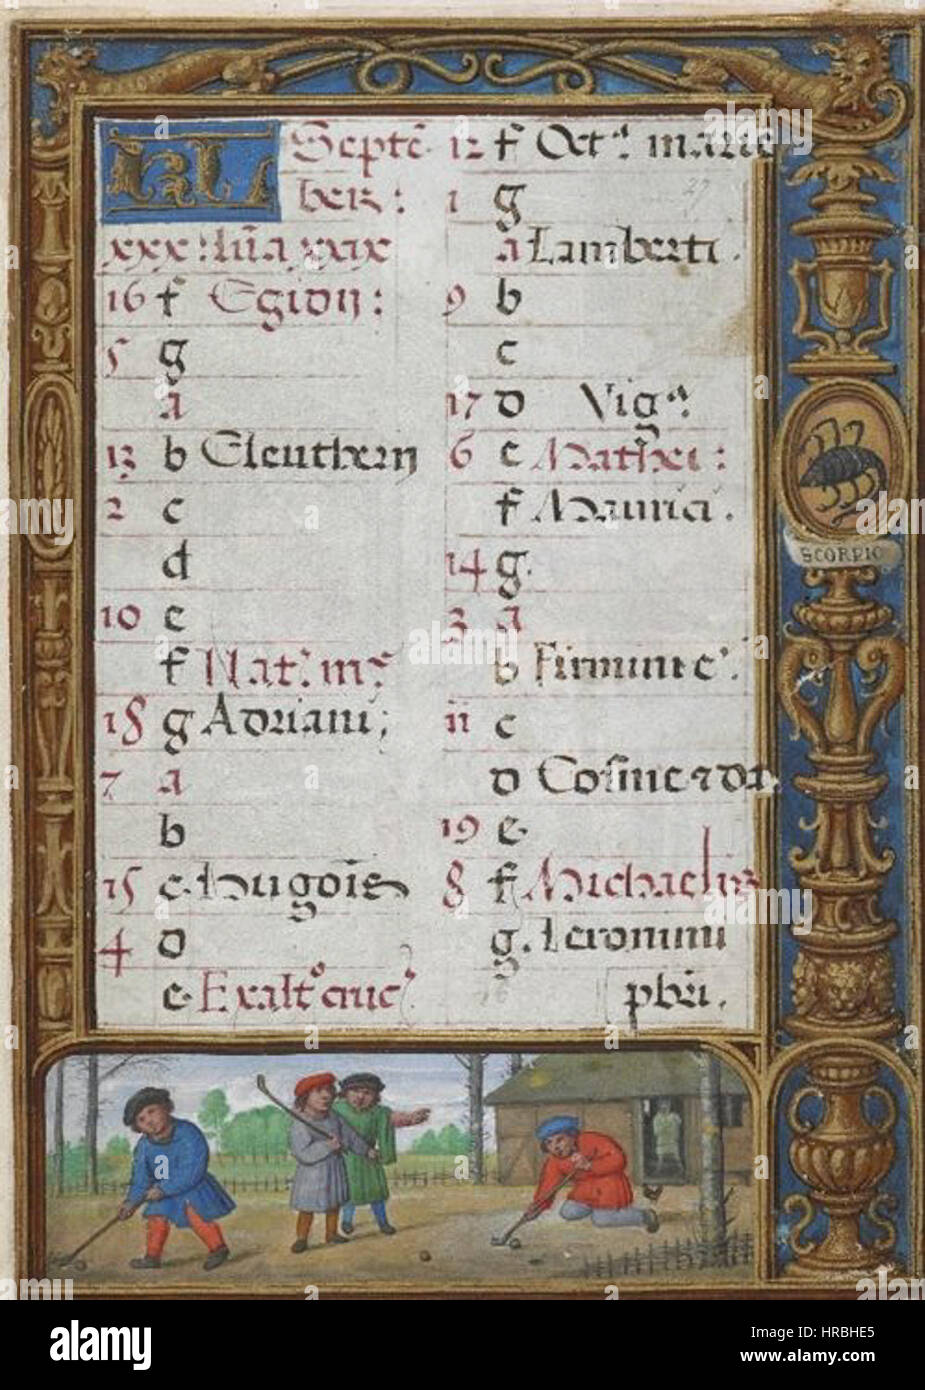 KL Septē
ber:
xxx: lūa xxix
16 f Egidij:
5 g
a
13 b Eleutherij
2 c
d
10 e
f Nat: m
18 g Adriani;
7 a
b
15 c Hugōis
4 d
e Exalt° cruc
12 f Oct marie
1 g
a Lamberti.
9 b
c
17 d Vig
6 e Mathei:
f Mauricii.
14 g.
3 a
b Firmini e.
11 c
d Cosme ⁊ da.
19 e
8 f Michaelis
g. Ieronimi
pbri.
27
SCORPIO
alamy
Image ID: HRBHE5
www.alamy.com